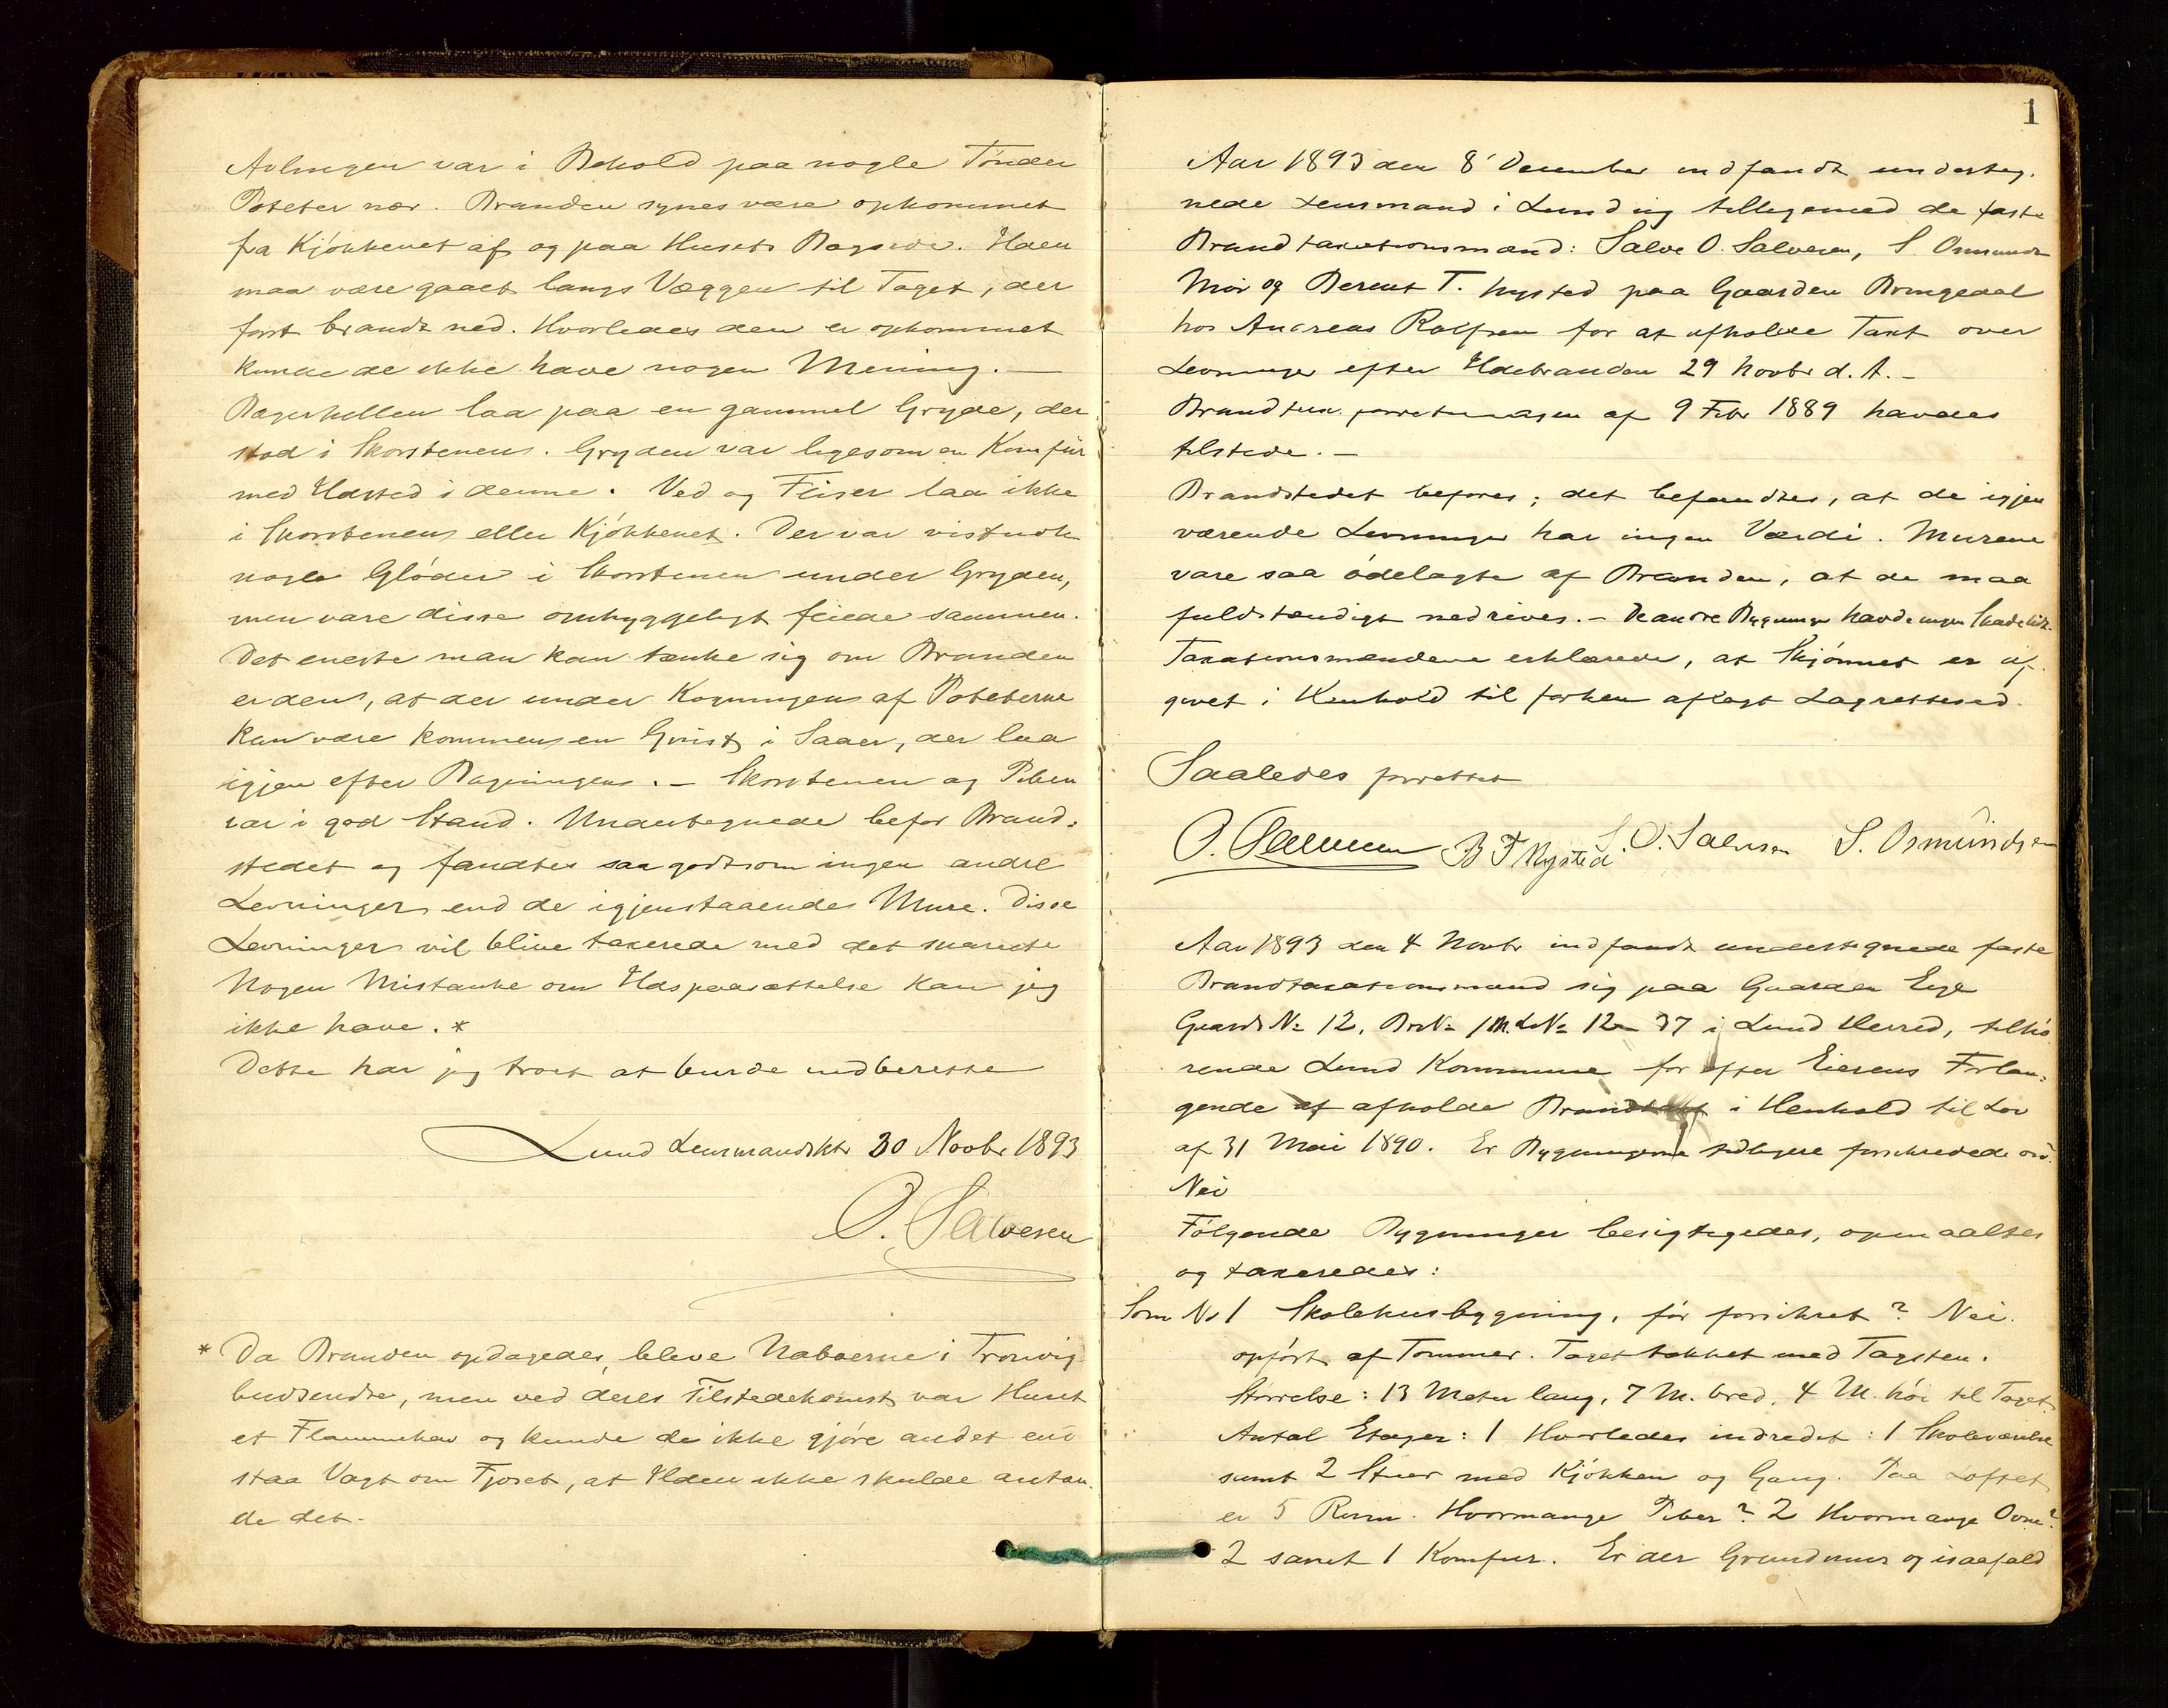 Avlingen var i Behold paa nogle Tønder
Poteter nær. Branden synes være opkommet
fra Kjøkkenet af og paa Husets Bagside. Ilden
maa være gaaet langs Væggen til Taget, der
først brandt ned. Hvorledes den er opkommet
kunde de ikke have nogen Mening. —
Bagerhellen laa paa en gammel Gryde, der
stod i Skorstenen. Gryden var ligesom en Komfür
med Ildsted i denne. Ved og Fliser laa ikke
i Skorstenen eller Kjøkkenet. Der var vistnok
nogle Gløder i Skorstenen under Gryden,
men vare disse omhyggeligt feiede sammen.
Det eneste man kan tænke sig om Branden
er den, at der under Kogningen af Poteterne
kan være kommen en Gnist i Saaer, der laa
igjen efter Bagningen. — Skorstenen og Piben
var i god Stand. Undertegnede befor Brand-
stedet og fandtes saa godt som ingen andre
Levninger end de igjenstaaende Mure. Disse
Levninger vil blive taxerede med det snareste
Nogen Mistanke om Ildspaasættelse kan jeg
ikke have. *
Dette har jeg troet at burde indberette
Lund Lensmandskt. 30 Novbr 1893
O. Salvesen
* Da Branden opdagedes, bleve Naboerne i Tronvig
budsendte, men ved deres Tilstedekomst var Huset
et Flammehav og kunde de ikke gjøre andet end
staa Vagt om Fjøset, at Ilden ikke skulde antæn
de det.
1
Aar 1893 den 8' December indfandt underteg-
nede Lensmand i Lund sig tilligemed de faste
Brandtaxationsmænd: Salve O. Salvesen, S. Osmunds
Moi og Berent T. Nysted paa Gaarden Bringedal
hos Andreas Rolfsen for at afholde Taxt over
Levninger efter Ildebranden 29 Novbr d. A. —
Brandtax. forretningen af 9 Febr 1889 havdes
tilstede. —
Brandstedet befores; det befandtes, at de igjen
værende Levninger har ingen Værdi. Murene
vare saa ødelagte af Branden, at de maa
fuldstændigt nedrives. — De andre Bygninger havde ingen Skade lidt.
Taxationsmændene erklærede, at Skjønnet er af-
givet i Henhold til forhen aflagt Lagrettesed.
Saaledes forrettet
O. Salvesen B T Nysted S. O. Salvesen S. Osmündsen
Aar 1893 den 4 Novbr indfandt undertegnede faste
Brandtaxationsmænd sig paa Gaarden Eige
Gaards № 12, Br№ 1 M. L№ 12 37 i Lund Herred, tilhø
rende Lund Kommune for efter Eierens Forlan-
gende at afholde Brandtaxt i Henhold til Lov
af 31 Mai 1890. Er Bygningerne tidligere forsikrede
Nei
Følgende Bygninger besigtigedes, opmaaltes
og taxeredes:
Som No 1 Skolehusbygning, før forsikret? Nei.
opført af Tømmer. Taget tækket med Tagsten.
Størrelse: 13 Meter lang, 7 M. bred, 4 M. høi til Taget.
Antal Etager: 1 Hvorledes indredet: 1 Skoleværelse
samt 2 Stuer med Kjøkken og Gang. Paa Loftet
er 5 Rum. Hvormange Piber? 2 Hvormange Ovne?
2 samt 1 Komfur. Er der Grundmur og isaafald